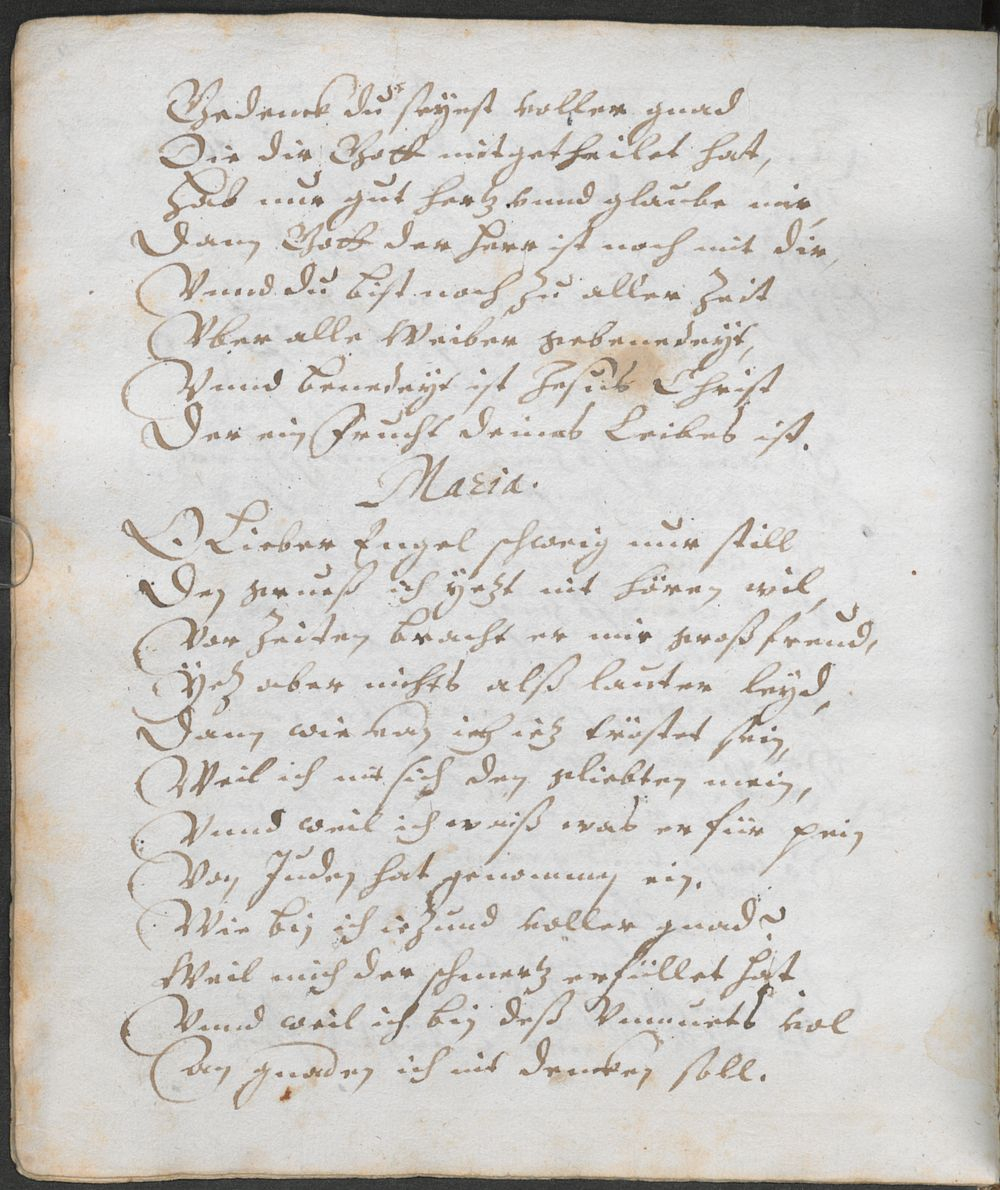 Gedenck du seyest voller gnad
Die dir Gott mitgetheilet hat,
Hab nur gut hertz vnnd glaube mir,
Dann Gott der Herr ist noch mit dir,
Vnnd du bist noch zu aller Zeit
Vber alle Weiber gebenedeyt,
Vnnd benedeyt ist Jesus Christ
Der ein Frucht deines Leibes ist.
Maria.
O Lieber Engel schweig nur still
Den grueß ich yetzt nit hören wil,
Vor Zeiten bracht er mir groß freud,
Yetz aber nichts alß lauter leyd,
Dann wie kan ich ietz tröstet sein,
Weil ich nit sich den gliebten mein,
Vnnd weil ich waiß was er für pein
Von Juden hat genommen ein.
Wie bin ich ietzund voller gnad?
Weil mich der schmertz erfüllet hat
Vnnd weil ich bin deß Vnmuets vol
an gnaden ich nit dencken soll.